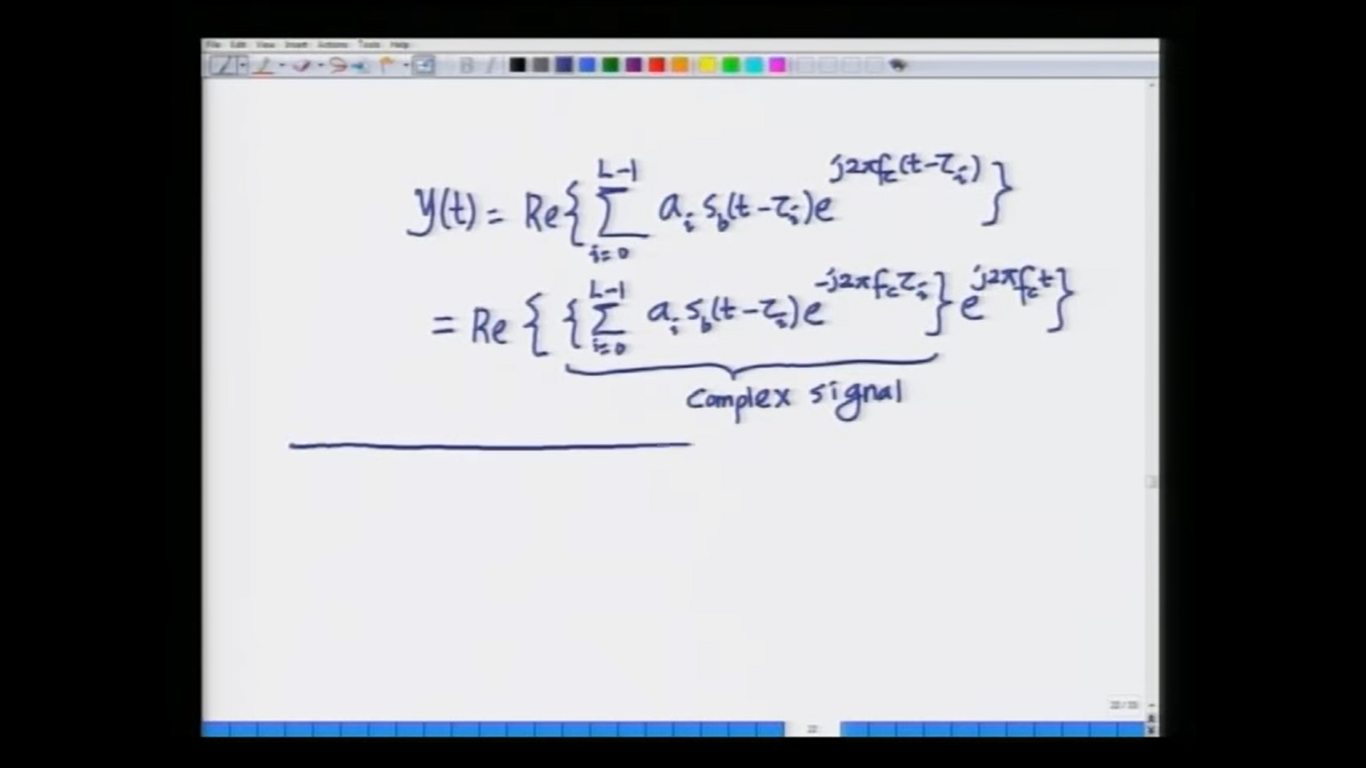 File Edit View Insert Actions Tools Help
y(t) = Re{ \sum_{i=0}^{L-1} a_i s_b(t-τ_i) e^{j2πf_c(t-τ_i)} }
= Re{ { \sum_{i=0}^{L-1} a_i s_b(t-τ_i) e^{-j2πf_cτ_i} } e^{j2πf_ct} }
Complex signal
22